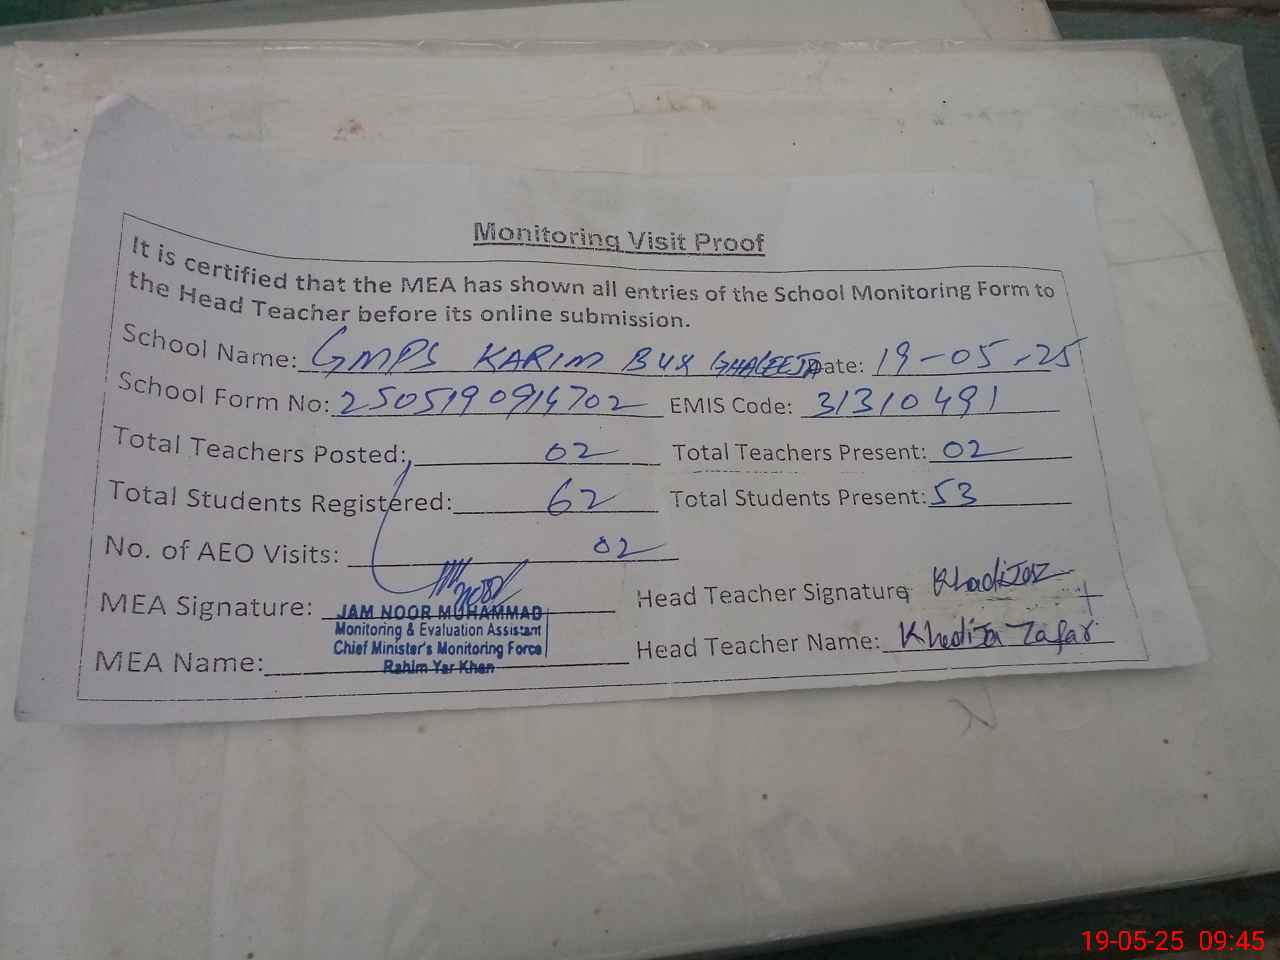 Monitoring Visit Proof
It is certified that the MEA has shown all entries of the School Monitoring Form to
the Head Teacher before its online submission.
School Name: GMPS KARIM BUX GHALEEJA Date: 19-05-25
School Form No: 2505190914702 EMIS Code: 31310491
Total Teachers Posted: 02 Total Teachers Present: 02
Total Students Registered: 62 Total Students Present: 53
No. of AEO Visits: 02
MEA Signature: Head Teacher Signature Khadija
JAM NOOR MUHAMMAD
Monitoring & Evaluation Assistant
Chief Minister's Monitoring Force
Rahim Yar Khan
MEA Name: Head Teacher Name: Khadija Zafar
19-05-25 09:45